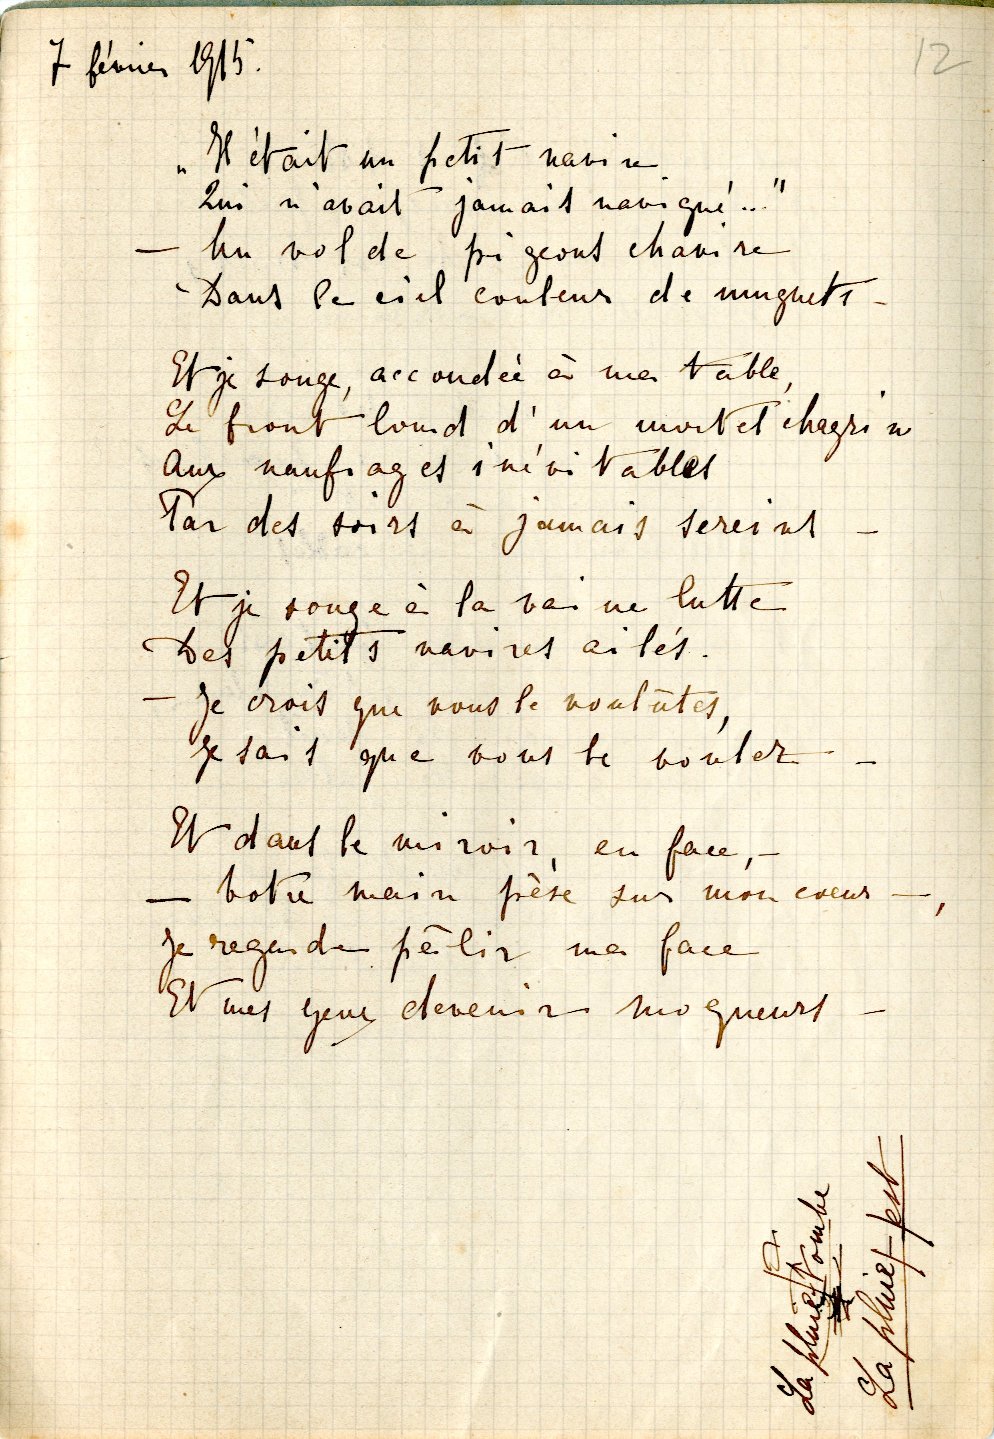 7 février 1915.
12
„ Il était un petit navire
Qui n'avait jamais navigué..."
— Un vol de pigeons chavire
Dans le ciel couleur de muguets —
Et je songe, accoudée à ma table,
Le front lourd d'un mortel chagrin
Aux naufrages inévitables
Par des soirs à jamais sereins —
Et je songe à la vaine lutte
Des petits navires ailés.
— Je crois que vous le voulûtes,
Je sais que vous le voulez —
Et dans le miroir, en face, —
— Votre main pèse sur mon coeur —,
Je regarde pâlir ma face
Et mes yeux devenir moqueurs —
La pluie tombe
La pluie est